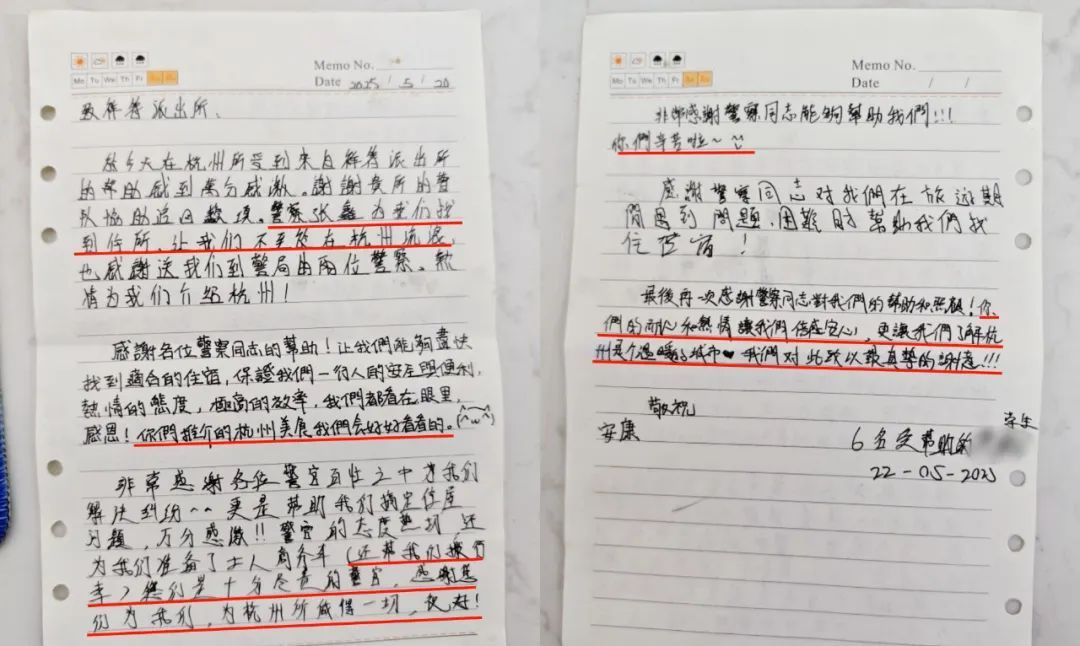 Memo No.
Mo Tu We Th Fr Sa Su
Date 2025 / 5 / 20
致祥符派出所：
於今天在杭州所受到来自祥符派出所
的帮助感到萬分感激。謝謝貴所的警
队協助追回款项。警察张鑫为我们找
到住所，让我们不至於在杭州流浪，
也感謝送我们到警局的兩位警察，熱
情为我们介绍杭州！
感謝各位警察同志的幫助！让我們能夠盡快
找到適合的住宿，保證我們一行人的安全與便利，
熱情的態度，極高的效率，我們都看在眼里，
感恩！你們推介的杭州美食我們会好好看看的。
非常感谢各位警官百忙之中为我们
解决纠纷~~更是帮助我们搞定住屋
问题，万分感激!! 警官的态度热切，还
为我们准备了七人商务车（还帮我们搬行
李）您们是十分尽责的警官，感谢您
们为我们，为杭州所做得一切，祝好！
Memo No.
Date / /
非常感謝警察同志能夠幫助我們!!!
你們辛苦啦~
感謝警察同志对我們在旅途期
間遇到問題、困難时幫助我們找
住宿！
最後再一次感謝警察同志對我們的幫助和照顧！你
們的耐心和熱情讓我們倍感安心，更讓我們了解杭
州是个溫暖的城市♥我們对此致以最真摯的謝意!!!
敬祝
安康
6名受幫助的 学生
22-05-2025